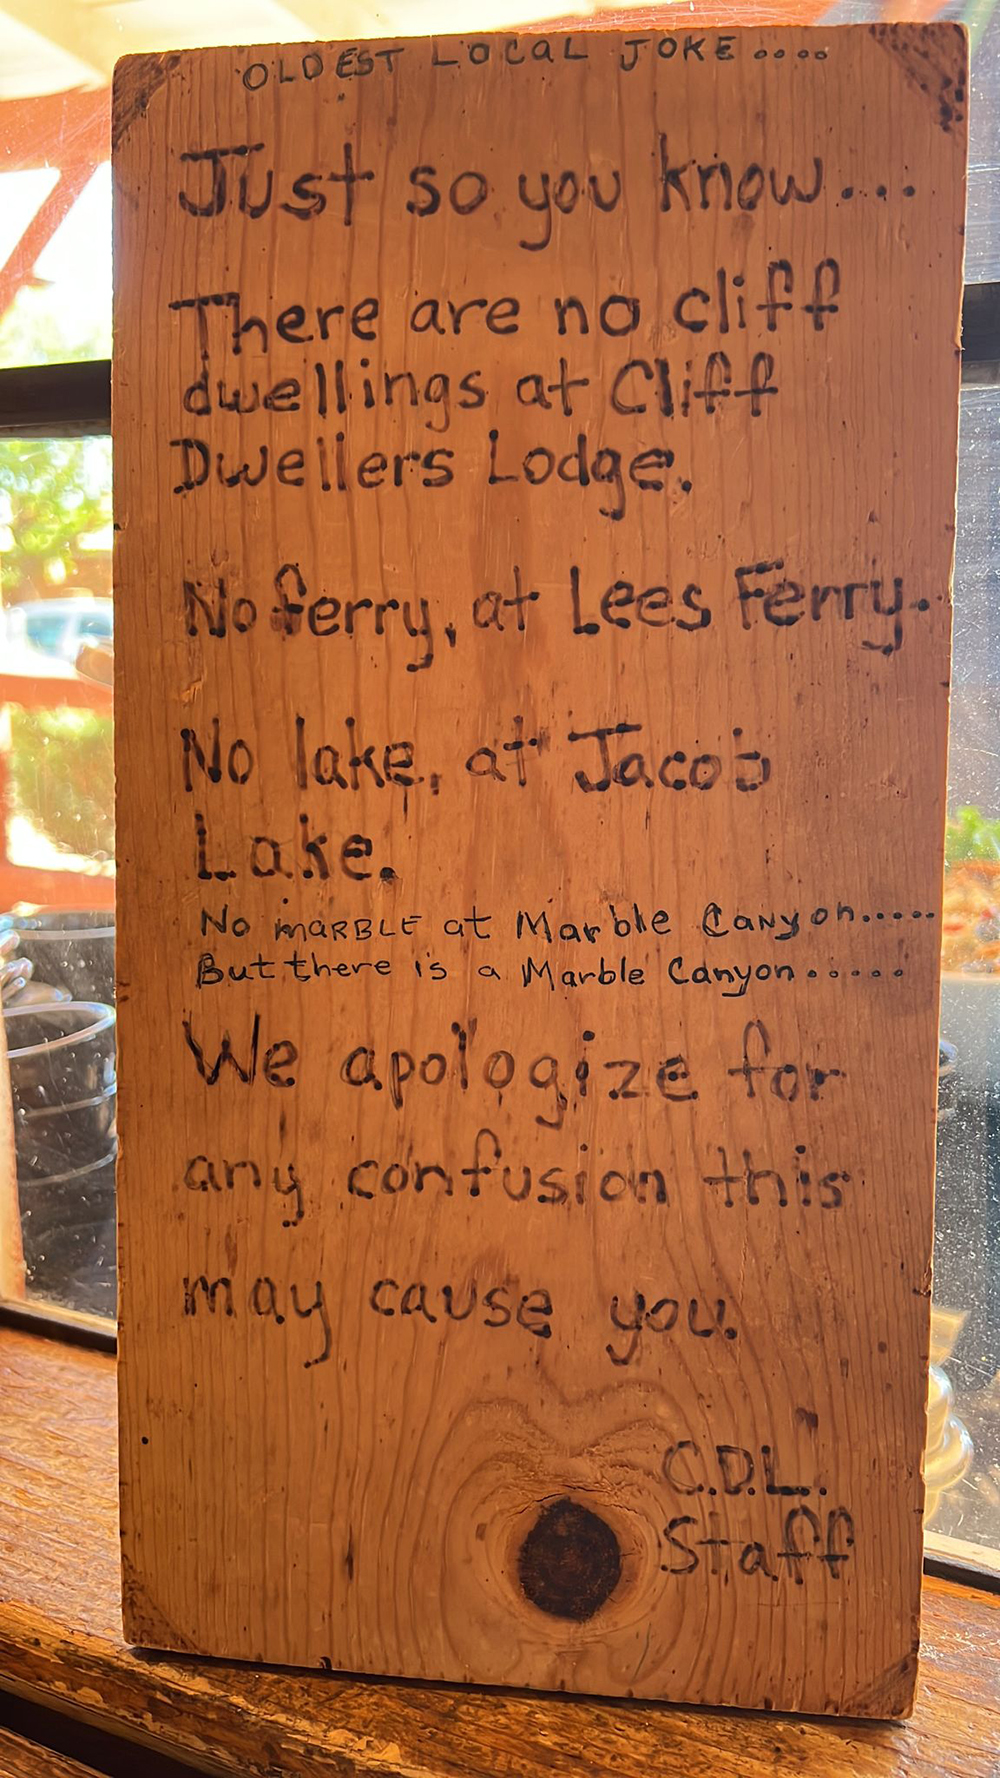 OLDEST LOCAL JOKE....
Just so you know...
There are no cliff
dwellings at Cliff
Dwellers Lodge.
No ferry, at Lees Ferry.
No lake, at Jacob
Lake.
No MARBLE at Marble Canyon.....
But there is a Marble Canyon.....
We apologize for
any confusion this
may cause you.
C.D.L.
Staff